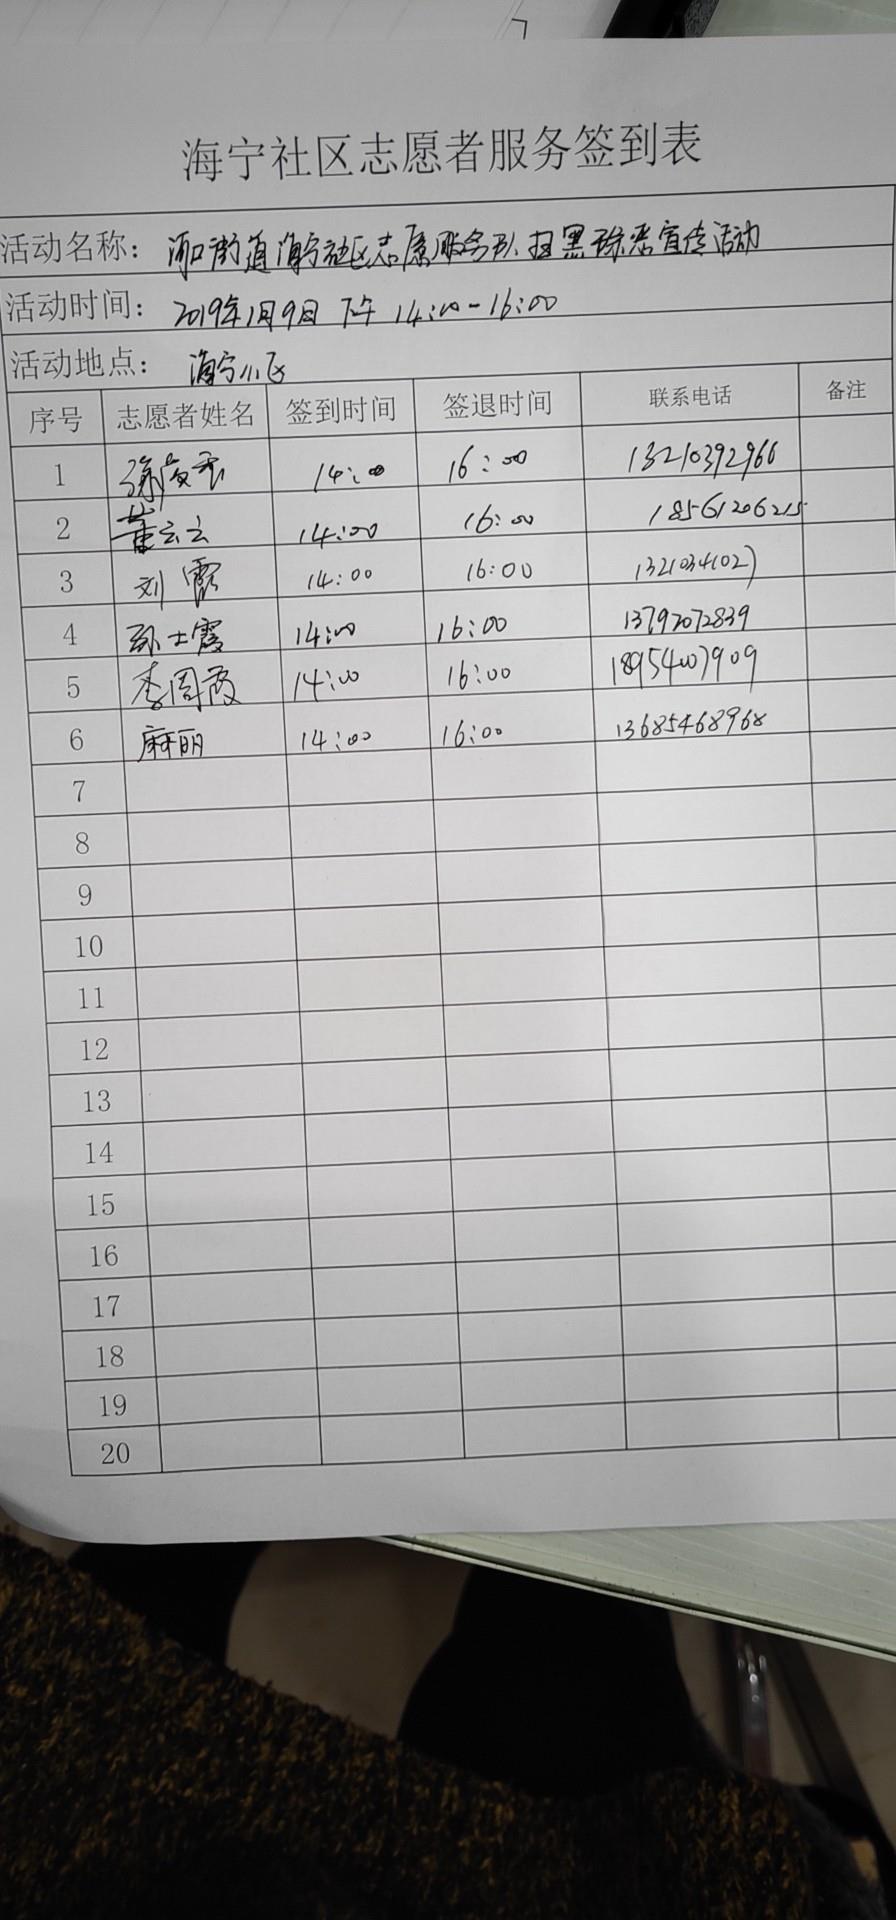 海宁社区志愿者服务签到表
活动名称: 河口街道海宁社区志愿服务队扫黑除恶宣传活动
活动时间: 2019年1月9日 下午 14:00-16:00
活动地点: 海宁小区
序号 志愿者姓名 签到时间 签退时间 联系电话 备注
1 14:00 16:00 13210392966
2 董云云 14:00 16:00 18561206215
3 刘霞 14:00 16:00 13210341027
4 孙士霞 14:00 16:00 13792072839
5 李周霞 14:00 16:00 18954007909
6 麻丽 14:00 16:00 13685468968
7
8
9
10
11
12
13
14
15
16
17
18
19
20